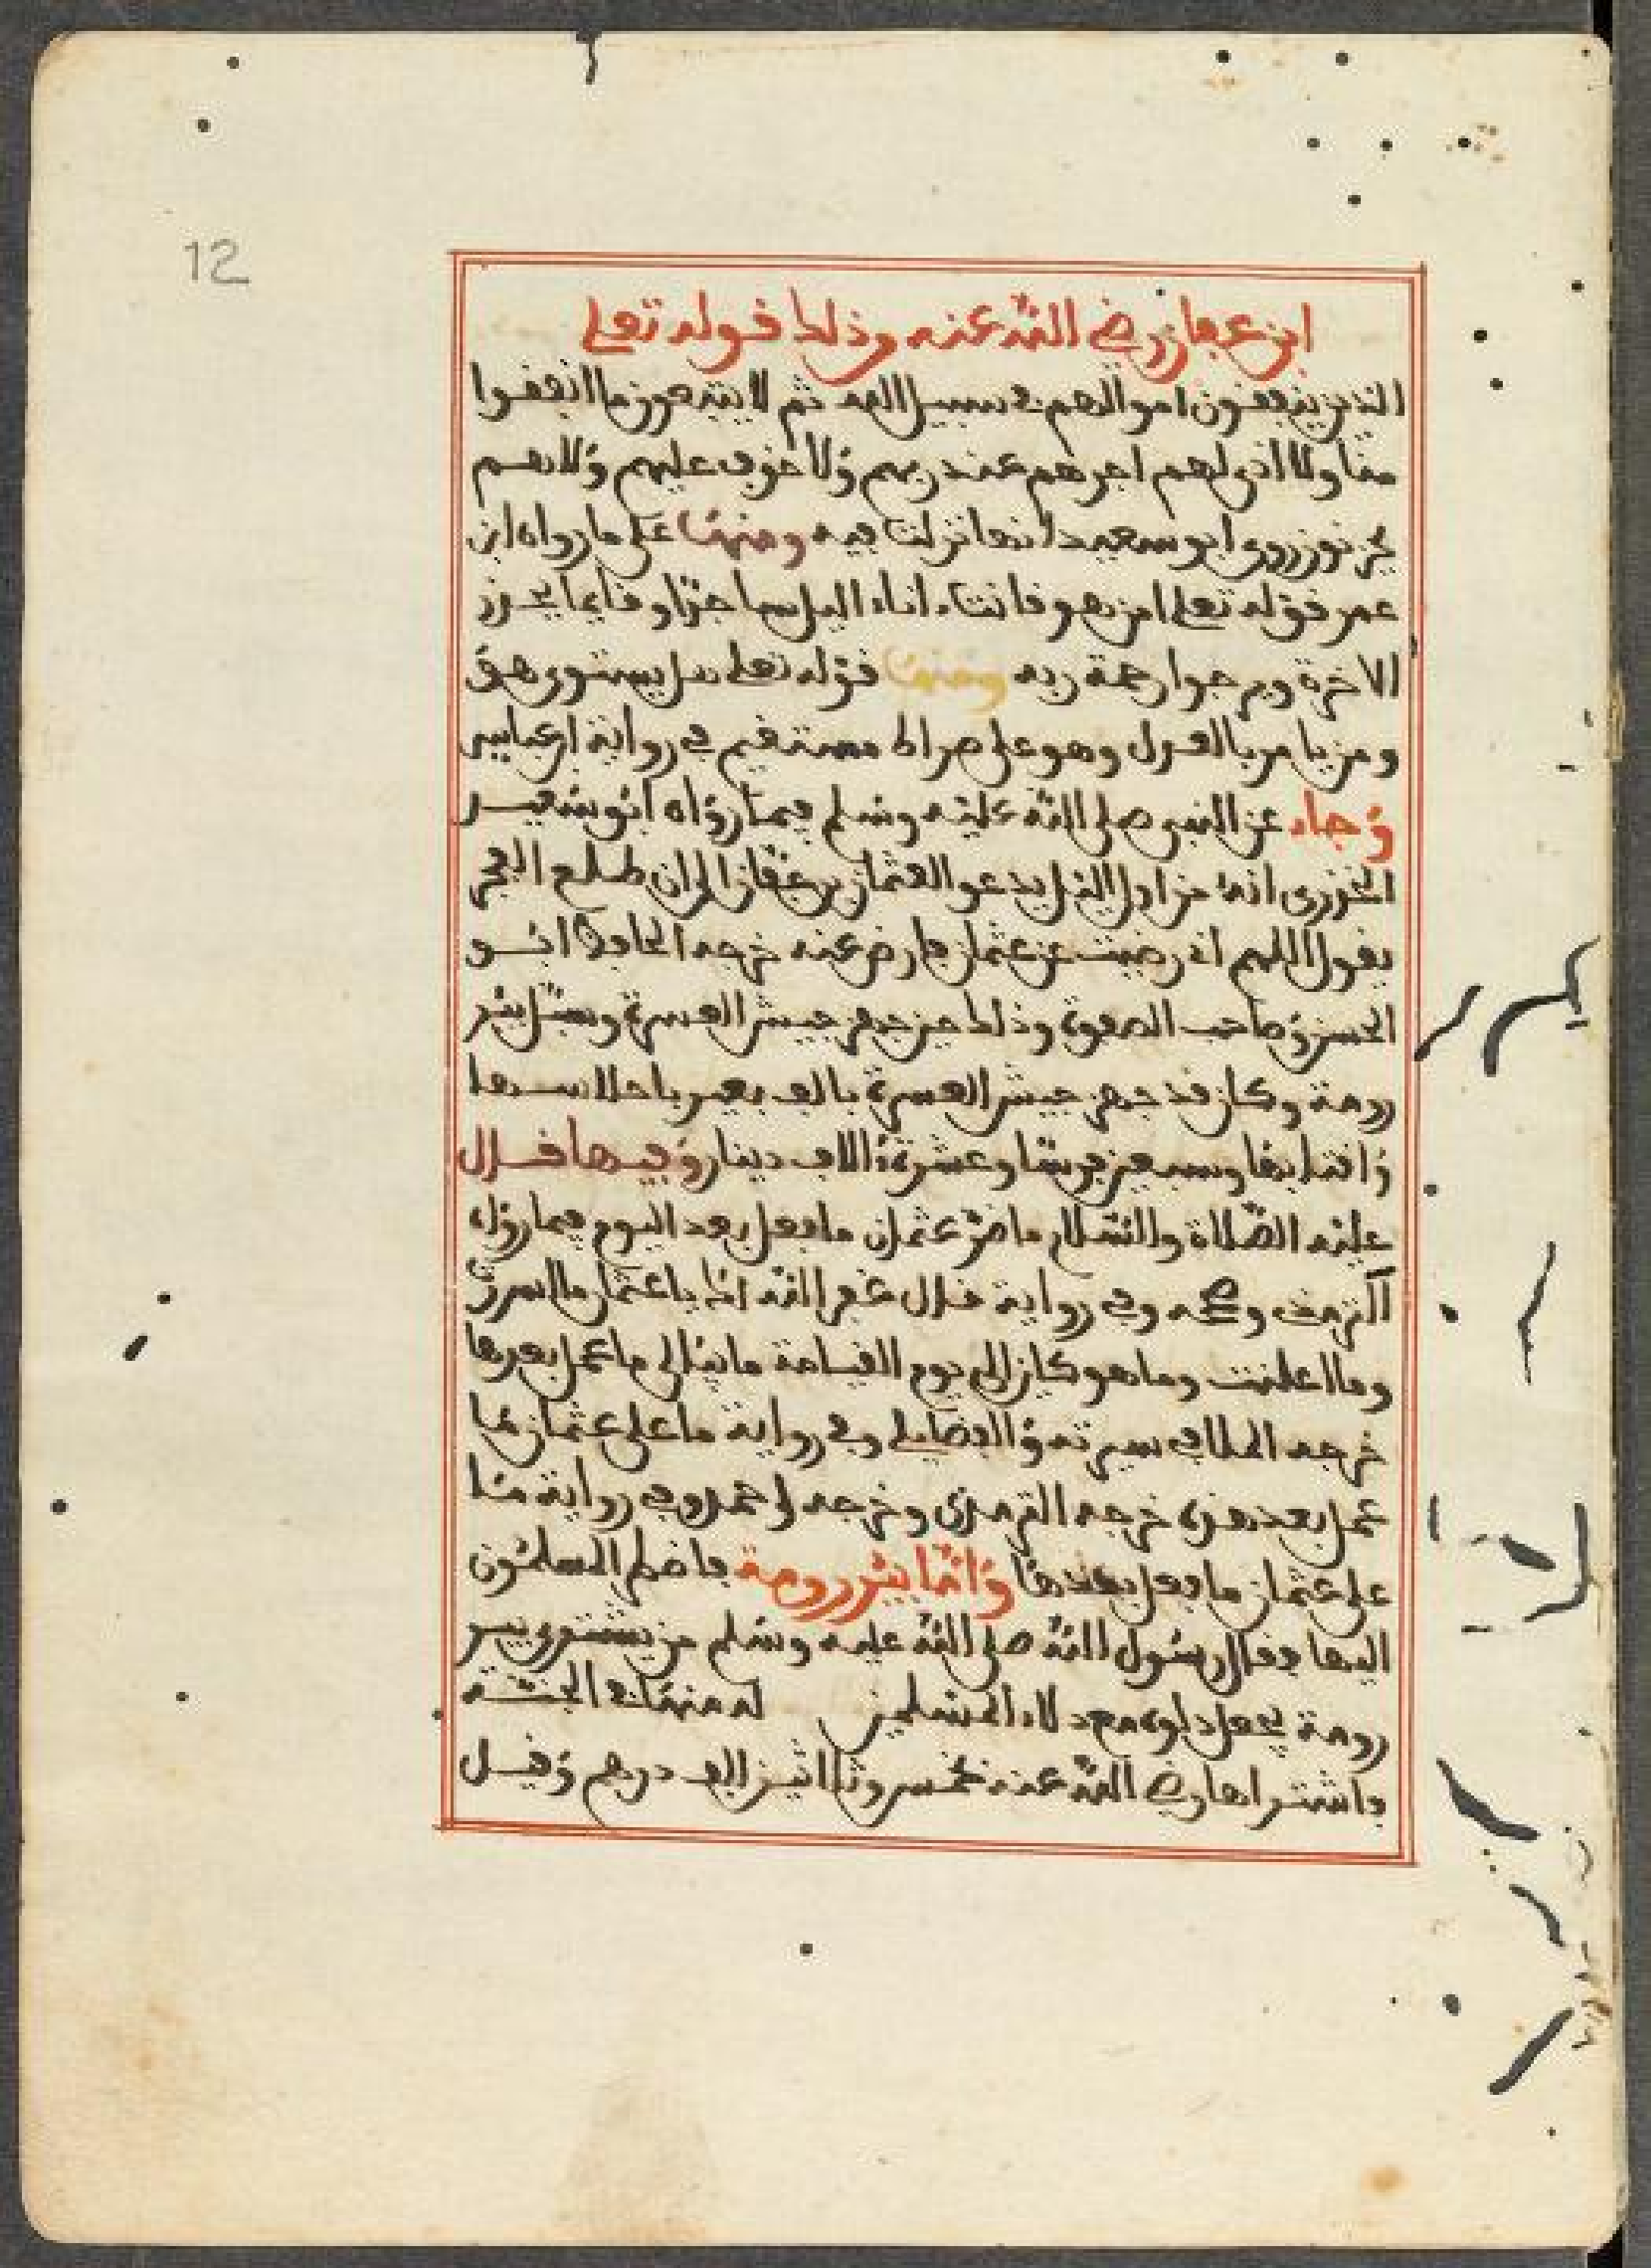 12
ابن عفان رضي الله عنه وذلك قوله تعلى
الذين ينفقون اموالهم في سبيل الله ثم لا يتبعون ما انفقوا
منا ولا اذى لهم اجرهم عند ربهم ولا خوف عليهم ولا هم
يحزنون روى ابو سعيد انها نزلت فيه ومنها على ما رواه ابن
عمر قوله تعلى امن هو قانت اناء اليل ساجدا وقايما يحذر
الاخرة ويرجوا رحمة ربه ومنها قوله تعلى هل يستوي هو
ومن يامر بالعدل وهو على صراط مستقيم في رواية ابن عباس
وجاء عن النبي صلى الله عليه وسلم فيما رواه ابو سعيد
الخدري انه من اول اليل يدعو العثمان بن عفان الى ان طلع الفجر
يقول اللهم اني رضيت عن عثمان فارض عنه خرجه الحافظ ابو
الحسن وصاحب الصفوة وذلك حين جهز جيش العسرة وسبل بئر
رومة وكان قد جهز جيش العسرة بالف بعير باحلاسها
واقتابها وسبعين فرسا وعشرة الاف دينار وفيها قال
عليه الصلاة والسلام ما ضر عثمان ما فعل بعد اليوم فيما رواه
الترمذي وصححه وفي رواية قال غفر الله لك يا عثمان ما اسررت
وما اعلنت وما هو كاين الى يوم القيامة ما يبالي ما عمل بعدها
خرجه الملا في سيرته والفضايلي وفي رواية ما على عثمان ما
عمل بعد هذى خرجه الترمذي وخرجه احمد وفي رواية ما
على عثمان ما فعل بعدها واما بئر رومة فاضطر المسلمون
اليها فقال رسول الله صلى الله عليه وسلم من يشتري بير
رومة يجعل دلوه مع دلاء المسلمين له منهلك الجنة
فاشتراها رضي الله عنه بخمس وثلاثين الف درهم وقيل